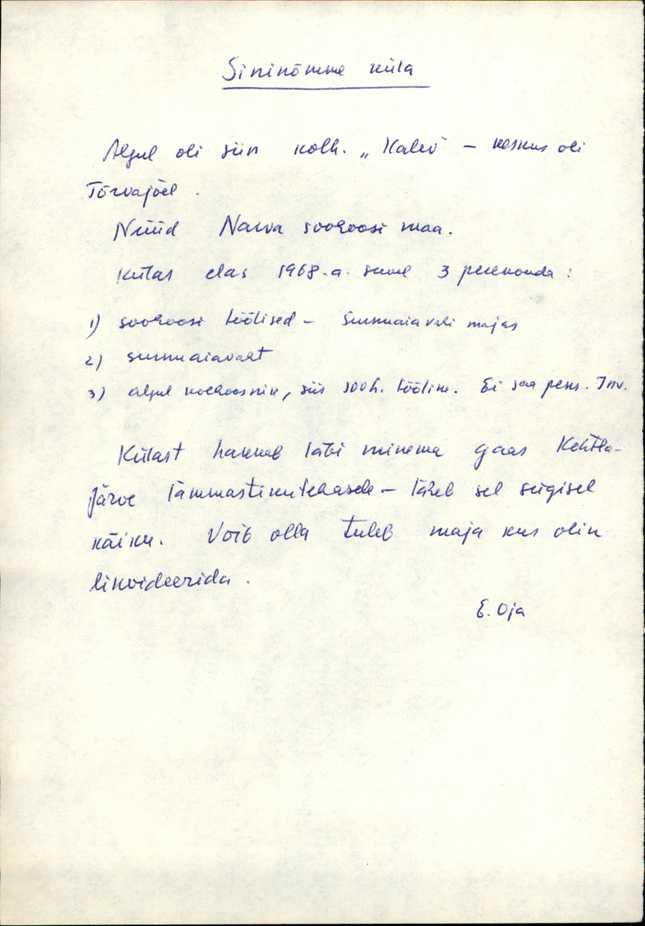 Sininõmme küla
Algul oli siin kolh. „Kalev" – keskus oli
Tõrvajõel.
Nüüd Narva sovhoosi maa.
Külas elas 1968.a. suvel 3 perekonda:
1) sovhoosi töölised – surnuaiavahi majas
2) surnuaiavaht
3) algul kolhoosnik, siis sovh. tööline. Ei saa pens. Inv.
Külast hakkab läbi minema gaas Kohtla-
Järve lämmastikutehasele – läheb sel sügisel
käiku. Võib olla tuleb maja kus olin
likvideerida.
E. Oja